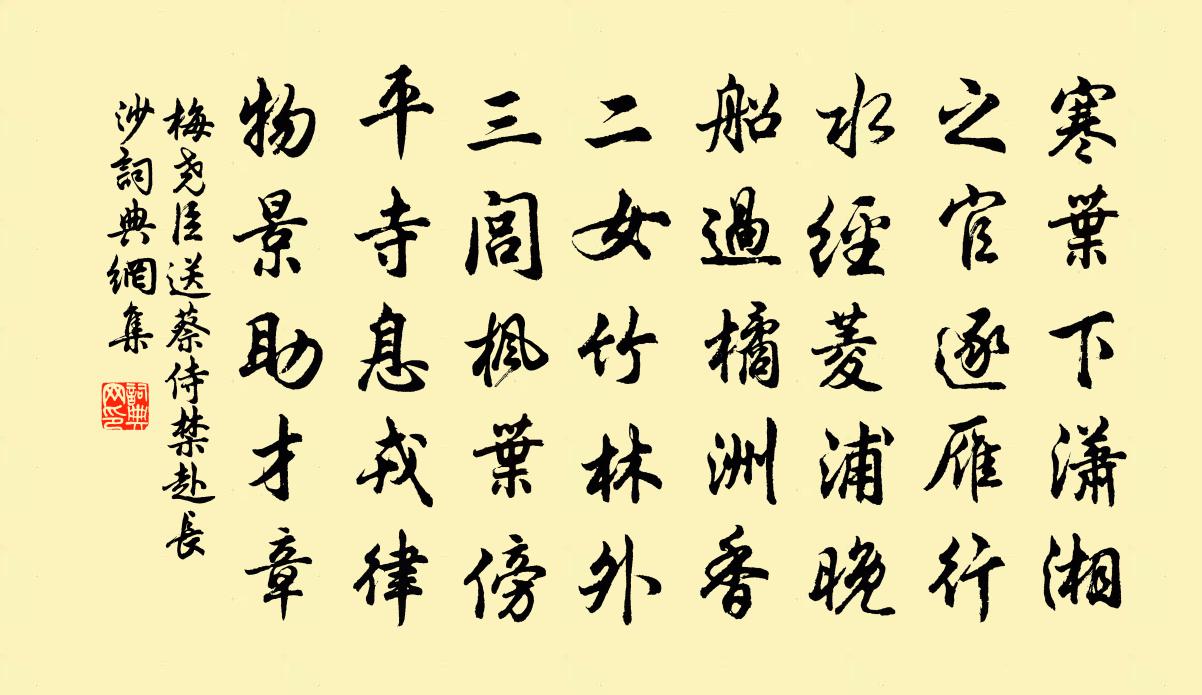 寒葉下瀟湘
之官逐雁行
水經菱浦晚
船過橘洲香
二女竹林外
三閭楓葉傍
平寺息戎律
物景助才章
梅堯臣送蔡侍禁赴長
沙詞典網集
詞典
网印